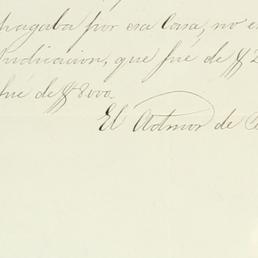 pagaba por esa Casa, no e
indicacion, que fué de $ 2
fué de $ 8000.
El Admor de C